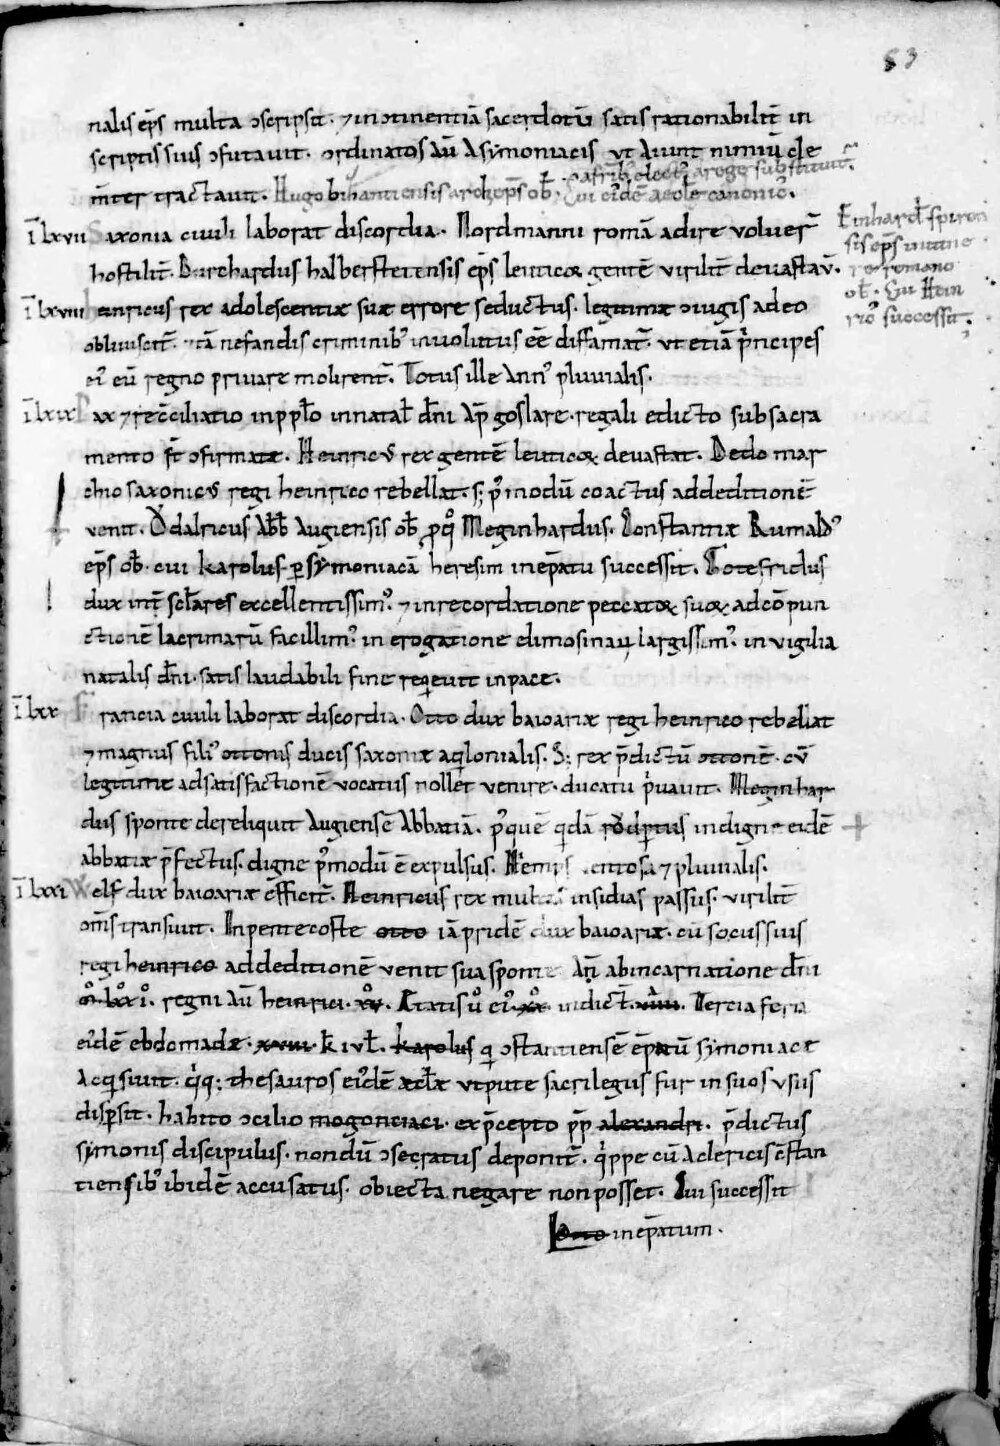 53
nalis ep̄s multa ɔscripsit · ⁊ inɔtinentiā sacerdotū satis rationabilit̄ in
scriptis suis ɔfutavit · ordinatos aū a symoniacis ut aiunt nimiū cle
m̄ter tractavit · Hugo bisantiensis archiep̄s ob̄ ·
a frīb; elect᷒ a rege substituit᷒ ·
cui eiᷤdē aecl̄e canonic᷒ ·
ī lxvii Saxonia civili laborat discordia · Nordmanni romā adire voluer̄
hostilit̄ · Burchardus halberstetensis ep̄s leuticoꝝ gentē virilit̄ devastav̄ ·
Einhard᷒ spiren
sis ep̄s
romano
ob̄ · Cui Hein
ric᷒ successit ·
ī lxviii heinricus rex adolescentiae suae errore seductus · legitimae ɔiugis adeo
obliviscit̄ · ⁊ tā nefandis criminib᷒ involutus eē diffamat̄ · ut etiā p̍ncipes
ei᷒ eū regno privare molirent̄ · Totus ille ann᷒ pluvialis ·
ī lxix Pax ⁊ rec̄ciliatio in ppl̄o in natal̄ dn̄i ap̄ goslare · regali edicto sub sacra
mento fit ɔfirmatae · Heinric᷒ rex gentē leuticoꝝ devastat · Dedo mar
chio saxonic᷒ regi heinrico rebellat · s; p᷒modū coactus ad deditionē
venit · Ŏdalricus abb̄ augiensis ob̄ ꝓ quo Meginhardus · Constantiae Rumald᷒
ep̄s ob̄ · cui karolus ꝑ symoniacā heresim in ep̄atu successit · Gotefridus
dux int̄ sc̄lares excellentissim᷒ · ⁊ in recordatione peccatoꝝ suoꝝ ad cōpun
ctionē lacrimarū facillim᷒ in erogatione elimosinaꝝ largissim᷒ · in vigilia
natalis dn̄i · satis laudabili fine reqievit in pace ·
ī lxx Francia civili laborat discordia · Otto dux baioariae regi heinrico rebellat
⁊ magnus fili᷒ ottonis ducis saxoniae aq̍lonialis · S; rex p̄dictū ottonē · cū
legitime ad satisfactionē vocatus nollet venire · ducatu p̍vavit · Meginhar
dus sponte dereliquit augiensē abbatiā · p᷒ quē q̍dā rŏdpertus indigne eidē
abbatiae p̄fectus · digne p᷒modū ē expulsus · Hiemps ventosa ⁊ pluvialis ·
ī lxxi Welf dux baioariae efficit̄ · Heinricus rex multas insidias passus · virilit̄
om̄s transivit · In pentecoste otto iā pridē dux baioariae · cū sociis suis
regi heinrico ad deditionē venit sua sponte Ān ab incarnatione dn̄i
m̊ · lxx̊ i̊ · regni aū heinrici · xv̊ · Aetatis ů ei᷒ · xx̊ · indict̄ · viiii · Tercia feria
eiᷤdē ebdomadae · xviii · k̄l iul̄ · karolus q̍ ɔstantiensē ep̄atū symoniace
acq̍sivit · q̍q; thesauros ei᷒dē aecl̄ae utpute sacrilegus fur in suos usus
dispersit · habito ɔcilio mogonciaci · ex p̄cepto pp̄ alexandri · p̄dictus
symonis discipulus · nondū ɔsecratus deponit̄ · q̍ppe cū a clericis c̄stan
tiensib᷒ ibidē accusatus · obiecta negare non posset · Cui successit
Otto in ep̄atum ·